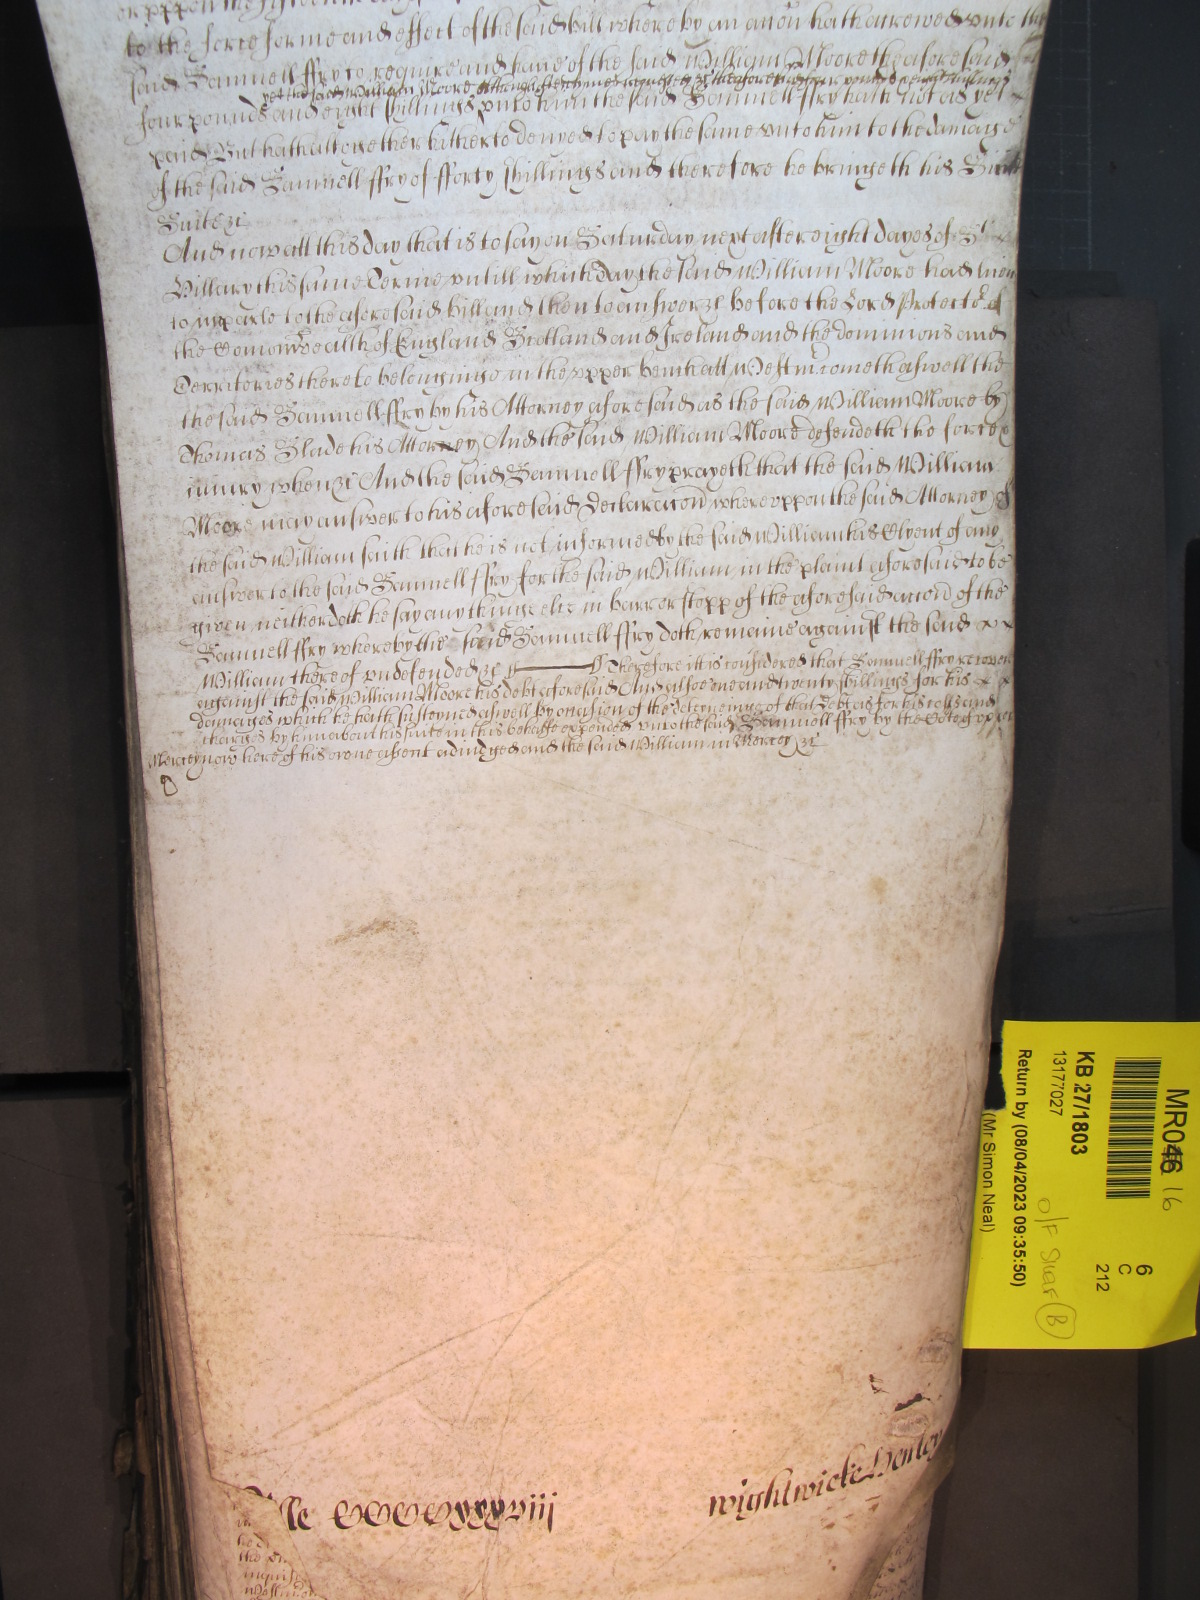 to the force forme and effect of the said bill whereby an accon hath accrewed unto the
said Samuell ffry to require and have of the said William Moore the aforesaid
yet the said William Moore although often times requested &c the aforesaid four pounds eight shillings
four pounds and eight shillings unto him the said Samuell ffry hath not as yet
paid But hath altogether hitherto denyed to pay the same unto him to the damage
of the said Samuell ffry of fforty shillings and therefore he bringeth his Suite
Suite &c
And now att this day that is to say on Saturday next after eight dayes of St
Hillary this same Terme untill which day the said William Moore had leave
to imparle to the aforesaid bill and then to answer &c before the Lord Protector of
the Comonwealth of England Scotland and Ireland and the dominions and
Territories thereto belonging in the upper bench att Westmr cometh aswell the
the said Samuell ffry by his Attorney aforesaid as the said William Moore by
Thomas Slade his Attorney And the said William Moore defendeth the force &
iniury when &c And the said Samuell ffry prayeth that the said William
Moore may answer to his aforesaid declaracon whereuppon the said Attorney of
the said William saith that he is not informed by the said William his Clyent of any
answer to the said Samuell ffry for the said William in the plaint aforesaid to be
given neither doth he say any thinge else in barr or stopp of the aforesaid accon of the
Samuell ffry whereby the said Samuell ffry doth remaine against the said
William thereof undefended &c Therefore itt is considered that Samuell ffry recover
against the said William Moore his debt aforesaid And alsoe one and twenty shillings for his
damages which he hath susteyned aswell by occasion of the deteineing of that debt as for his costs and
charges by him about his suite in this behalfe expended unto the said Samuell ffry by the Cort of upper
Mercy now here of his owne assent adiudged and the said William in Mercy &c
lle CCCCxxxviii
wightwicke Henley
MR046 16
KB 27/1803
13177027
Return by (08/04/2023 09:35:50)
(Mr Simon Neal)
O/F Shelf B
6
C
212